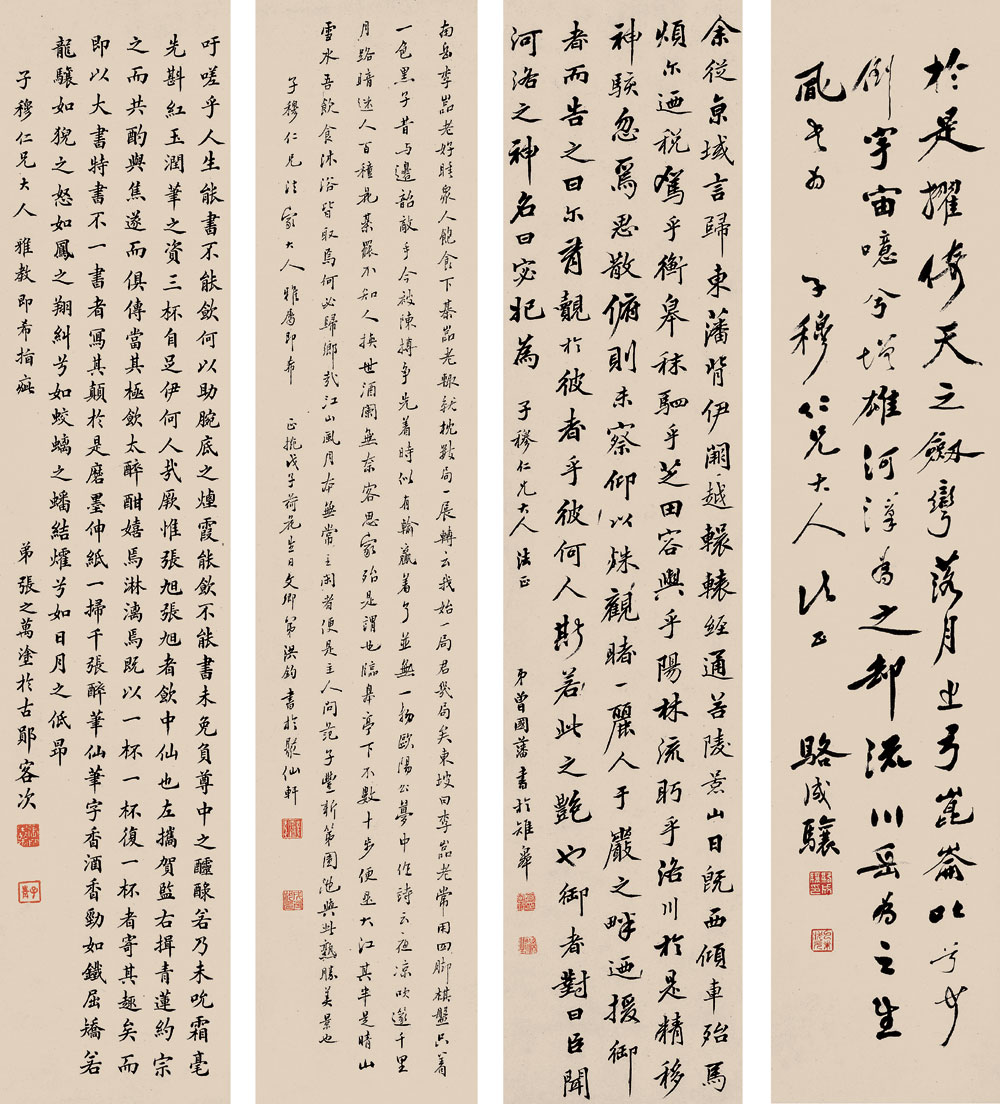 於是擢倚天之劔彎落月之弓崑崙叱兮可
倒宇宙噫兮增雄河漢為之却流川岳為之生
風也为 子穆仁兄大人 法正 駱成驤
余從京域言歸東藩背伊闕越轘轅經通谷陵景山日旣西傾車殆馬
煩尔迺税駕乎衡皋秣駟乎芝田容與乎陽林流眄乎洛川於是精移
神駭忽焉思散俯則未察仰以殊觀睹一麗人于巖之畔迺援御
者而告之曰尔有覿於彼者乎彼何人斯若此之艶也御者對曰臣聞
河洛之神名曰宓妃為 子穆仁兄大人 法正 弟曾國藩書於雉皋
南岳李嵓老好睡衆人飽食下棊嵓老輙就枕數局一展轉云我始一局君幾局矣東坡曰李嵓老常用四脚棋盤只着
一色黑子昔與邊韶敵手今被陳摶争先着時似有輸贏着了並無一物歐陽公夢中作詩云夜凉吹邃千里
月路暗迷人百種花棊罷不知人换世酒闌無奈客思家殆是謂也臨皋亭下不數十步便是大江其半是晴山
雪水吾飲食沐浴皆取焉何必歸鄉哉江山風月本無常主闲者便是主人問范子豐新第園池與此孰勝美景也
子穆仁兄 法家大人 雅屬即希 正撝戊子荷花生日文卿弟洪鈞書於聚仙軒
吁嗟乎人生能書不能飲何以助腕底之煙霞能飲不能書未免負尊中之醽醁若乃未吮霜毫
先斟紅玉潤筆之資三杯自足伊何人哉厥惟張旭張旭者飲中仙也左攜賀監右揖青蓮約宗
之而共酌與焦遂而俱傳當其極飲太醉酣嬉焉淋漓焉既以一杯一杯復一杯者寄其趣矣而
即以大書特書不一書者寫其顛於是磨墨伸紙一掃千張醉筆仙筆字香酒香勁如鐵屈矯若
龍驤如猊之怒如鳳之翔糾兮如蛟螭之蟠結燿兮如日月之低昂
子穆仁兄大人 雅教即希指疵 弟張之萬塗於古鄖客次